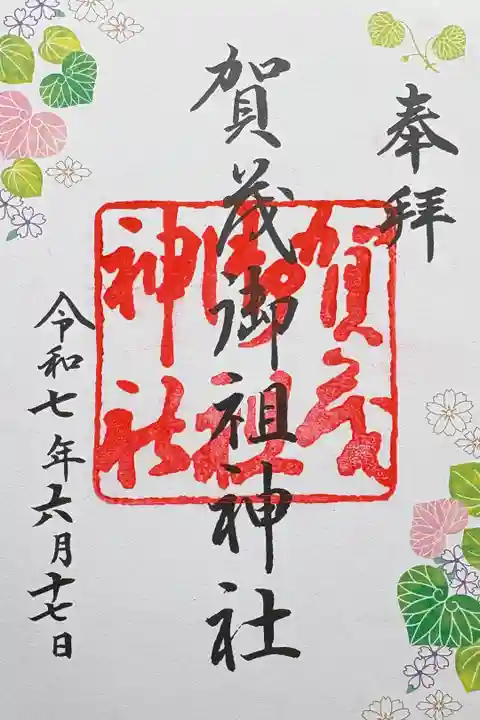 奉拝
賀茂御祖神社
賀茂御祖神社
令和七年六月十七日